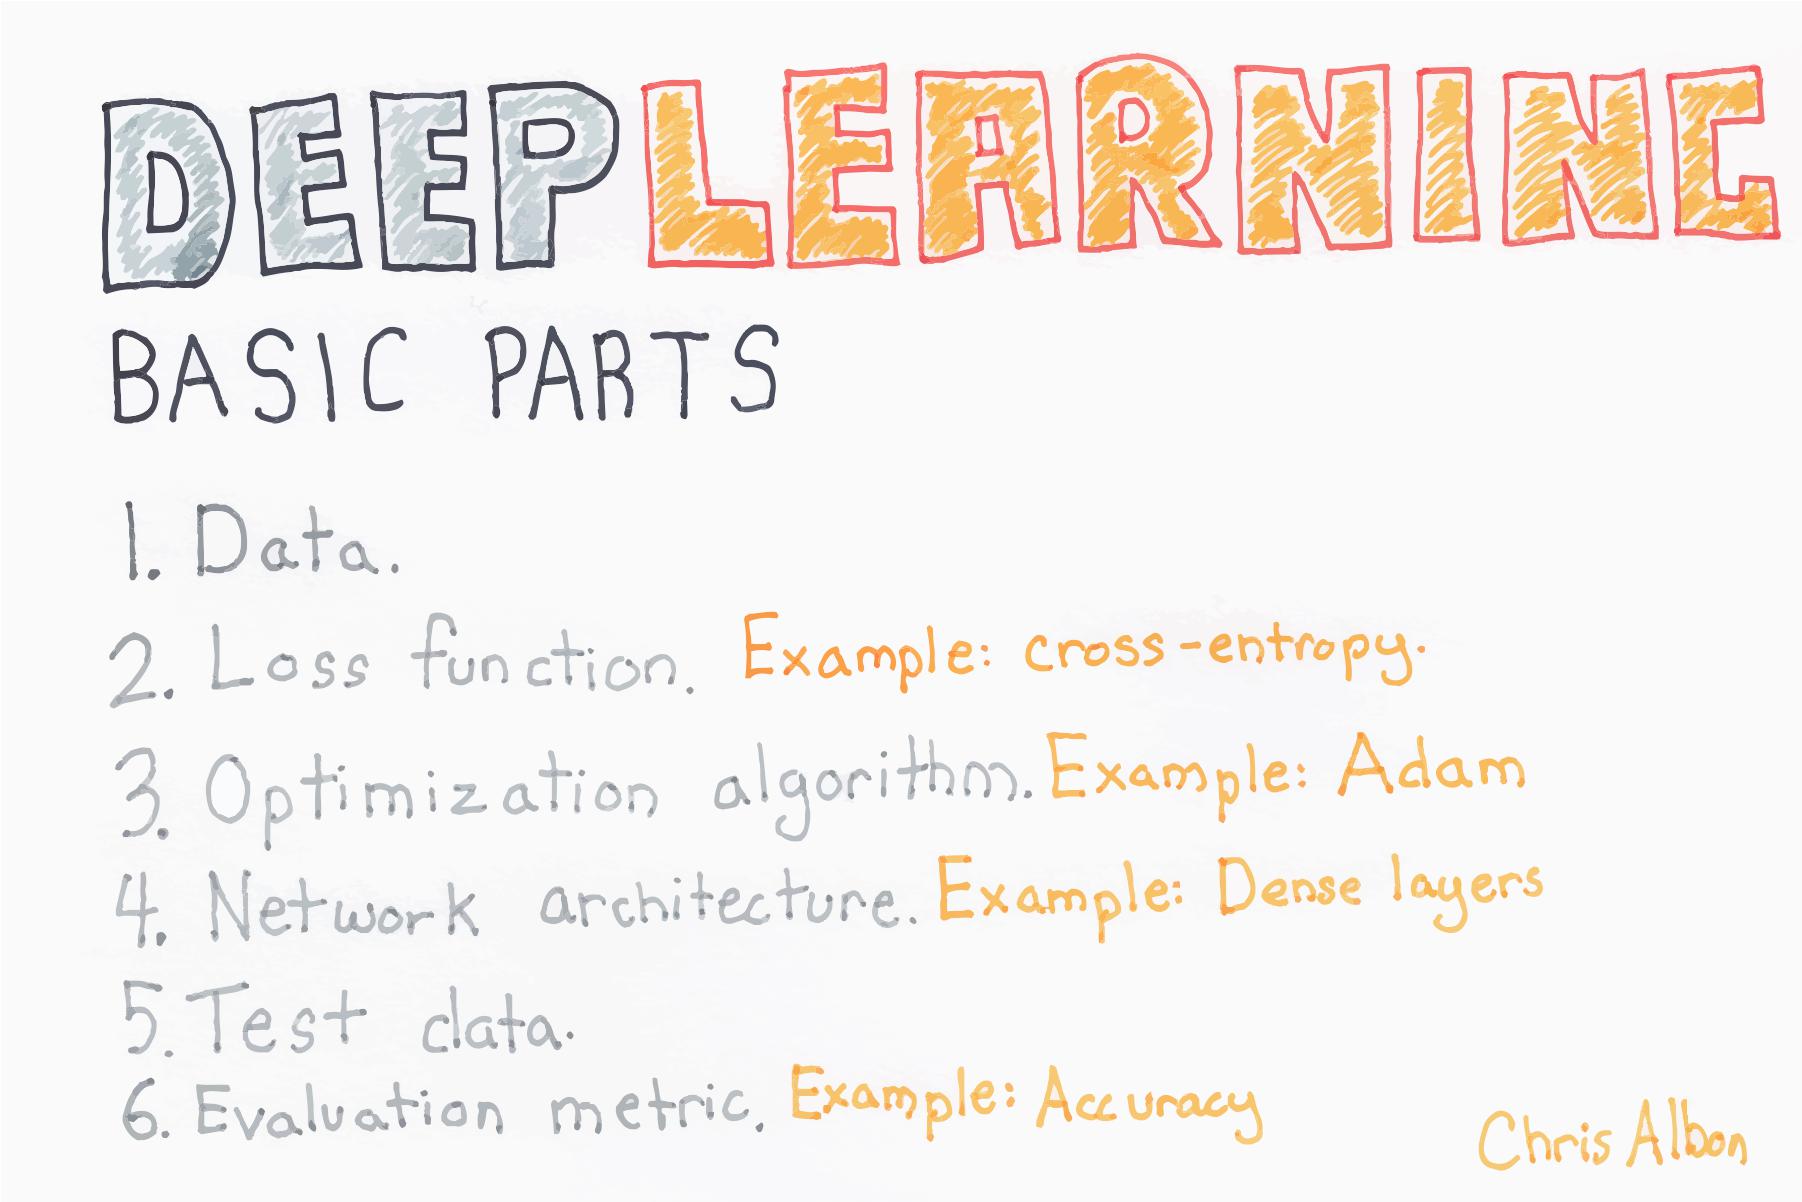 DEEP LEARNING
BASIC PARTS
1. Data.
2. Loss function. Example: cross-entropy.
3. Optimization algorithm. Example: Adam
4. Network architecture. Example: Dense layers
5. Test data.
6. Evaluation metric. Example: Accuracy
Chris Albon